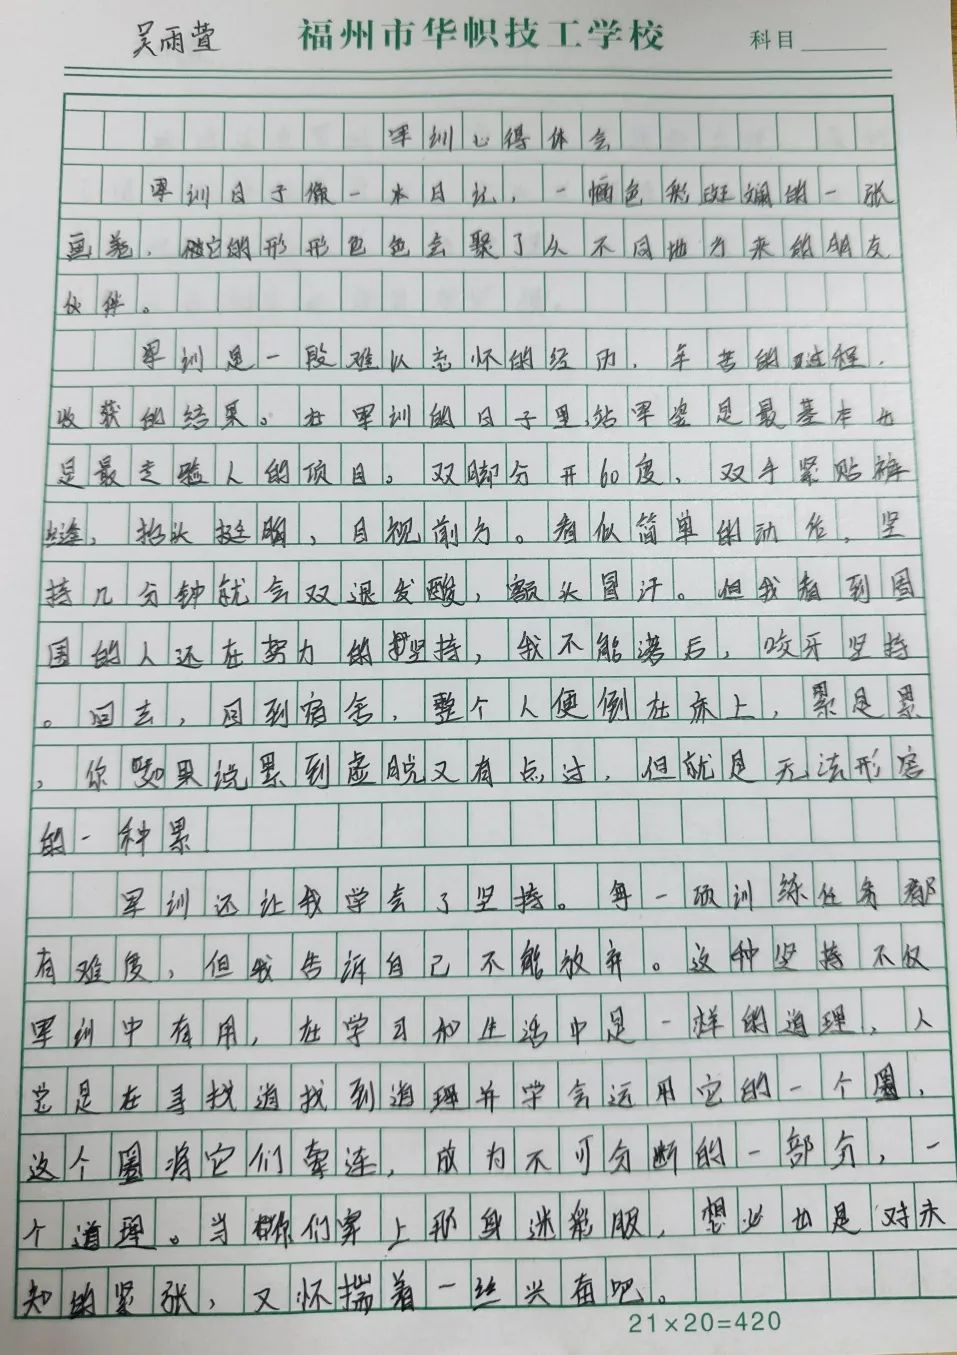 吴雨萱
福州市华帜技工学校 科目
军训心得体会
军训日子像一本日记,一幅色彩斑斓的一张
画卷,被它的形形色色会聚了从不同地方来的朋友
伙伴。
军训是一段难以忘怀的经历,辛苦的过程,
收获的结果。在军训的日子里,站军姿是最基本也
是最考验人的项目。双脚分开60度、双手紧贴裤
缝,抬头挺胸,目视前方。看似简单的动作,坚
持几分钟就会双退发酸,额头冒汗。但我看到周
围的人还在努力的坚持,我不能落后,咬牙坚持
。回去,回到宿舍,整个人便倒在床上,累是累
,你如果说累到虚脱又有点过,但就是无法形容
的一种累
军训还让我学会了坚持。每一项训练任务都
有难度,但我告诉自己不能放弃。这种坚持不仅
军训中有用,在学习和生活中是一样的道理,人
总是在寻找道找到道理并学会运用它的一个圈,
这个圈将它们牵连,成为不可分断的一部分,一
个道理。当你们穿上那身迷彩服,想必也是对未
知的紧张,又怀揣着一丝兴奋吧。
21×20=420